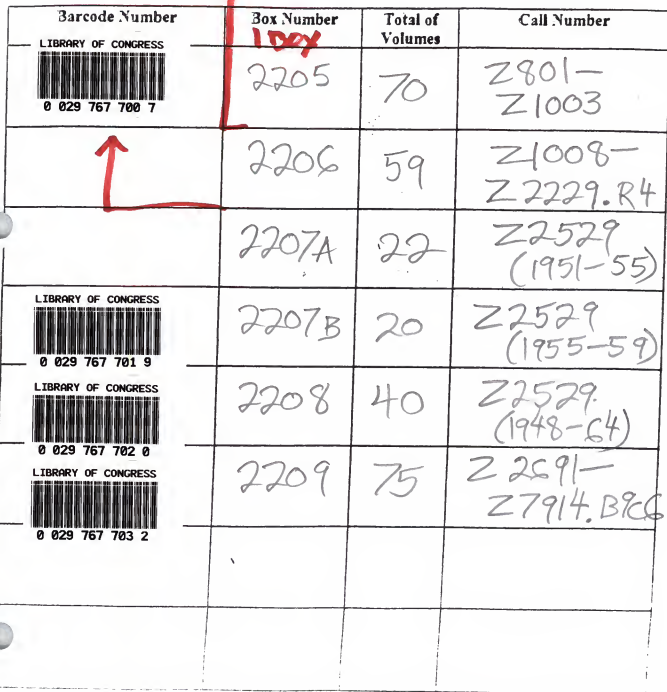 Barcode Number Box Number Total of Volumes Call Number
1 Box
LIBRARY OF CONGRESS
0 029 767 700 7
2205 70 Z801-
Z1003
2206 59 Z1008-
Z2229.R4
2207A 22 Z2529
(1951-55)
LIBRARY OF CONGRESS
0 029 767 701 9
2207B 20 Z2529
(1955-59)
LIBRARY OF CONGRESS
0 029 767 702 0
2208 40 Z2529.
(1948-64)
LIBRARY OF CONGRESS
0 029 767 703 2
2209 75 Z2691-
Z7914.B9C6